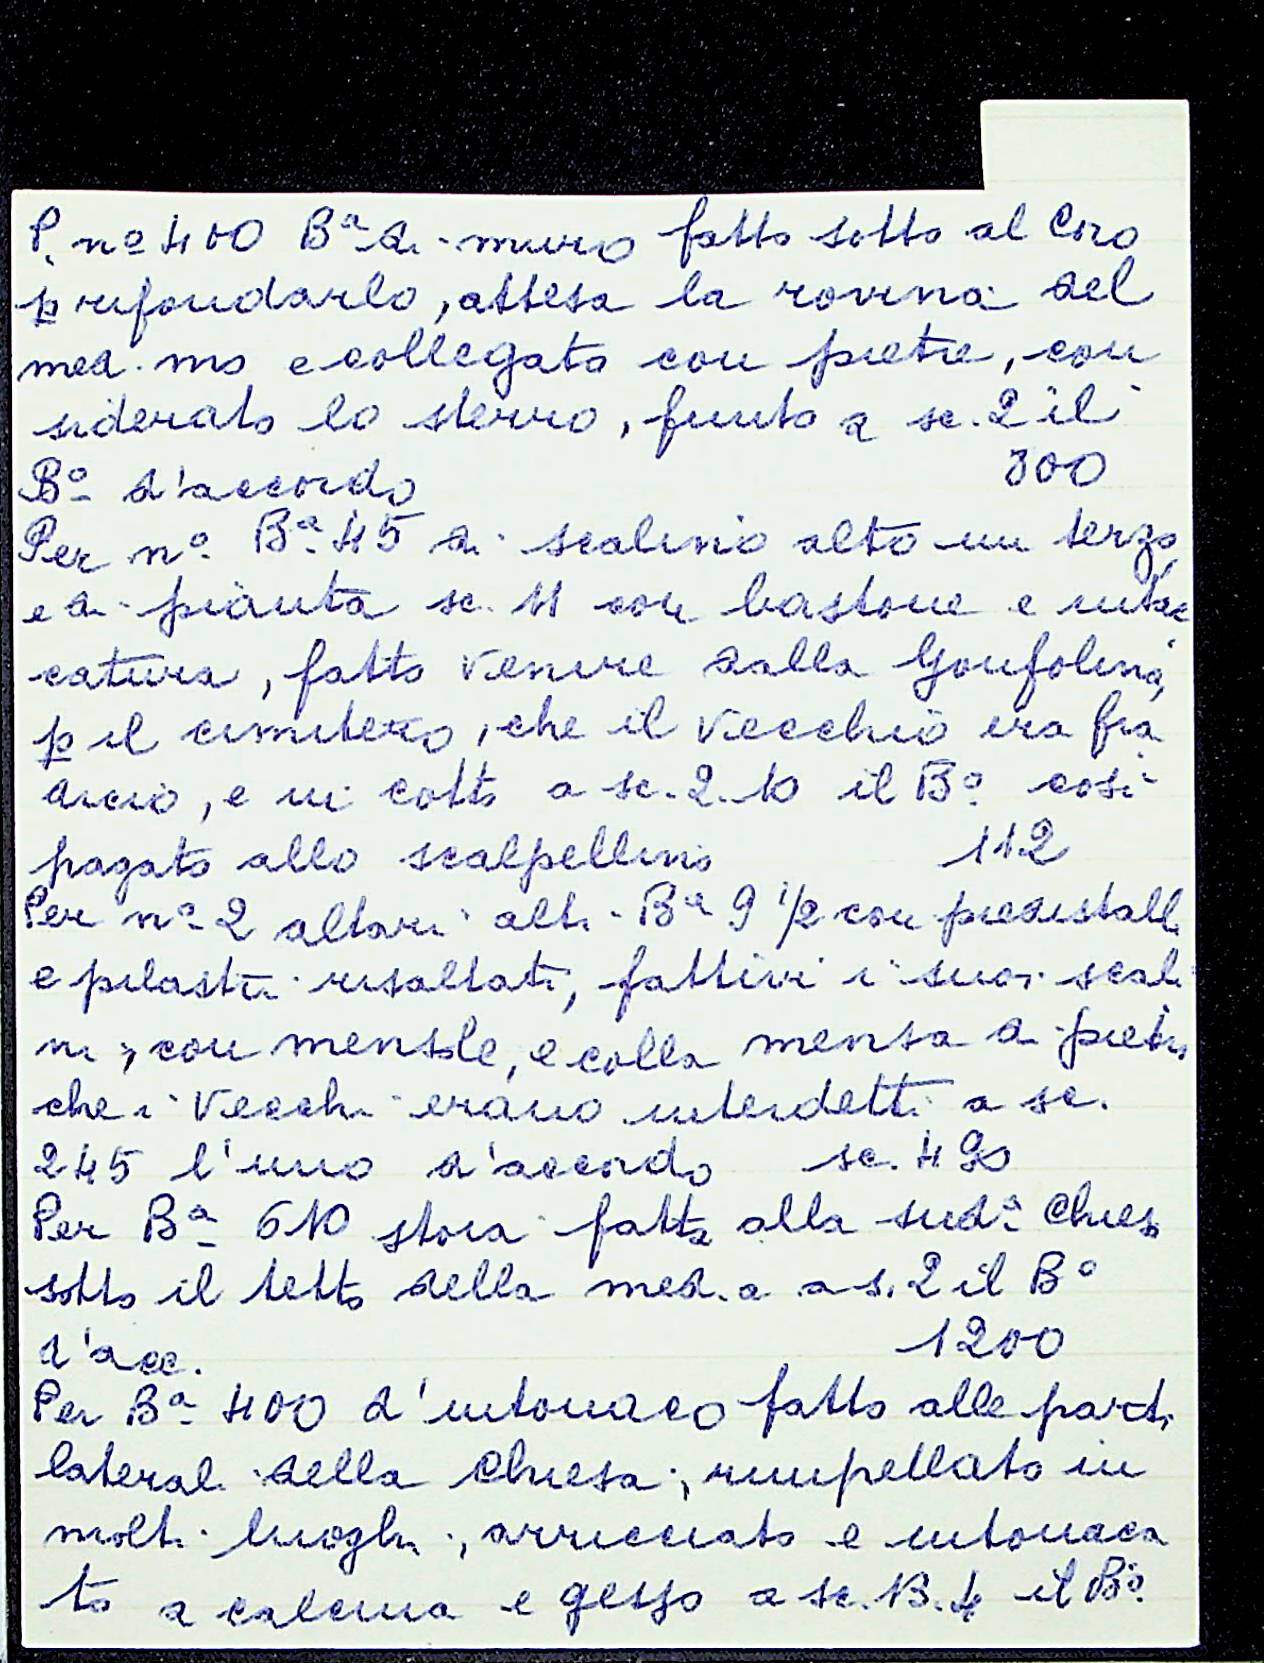 P. nº 400 Bª di muro fatto sotto al Coro
p rifondarlo, attesa la rovina del
med.mo e collegato con pietre, con
siderato lo sterro, giunto a sc. 2 il
Bº d'accordo 800
Per nº Bª 45 di scalino alto un terzo
e di pianta sc. 11 con bastone e intac
catura, fatto venire dalla Gonfolina,
p il cimitero, che il vecchio era fra
dicio, e in cotto a sc. 2.10 il Bº così
pagato allo scalpellino 112
Per nº 2 altari alti Bª 9 1/2 con piedistalli
e pilastri risaltati, fattivi i suoi scali
ni, con mensole, e colla mensa di pietra
che i vecchi erano interdetti a sc.
245 l'uno d'accordo sc. 490
Per Bª 610 stoia fatta alla sudª Chiesa
sotto il tetto della med.a a s. 2 il Bº
d'acc. 1200
Per Bª 400 d'intonaco fatto alle parti
laterali della Chiesa, rimpellato in
molti luoghi, arricciato e intonaca
to a calcina e gesso a sc. 13.4 il Bº